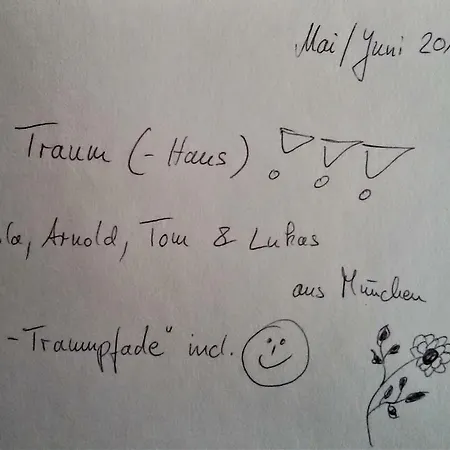 Mai/Juni 20
Traum (-Haus) !!!
la, Arnold, Tom & Lukas
aus München
-Traumpfade" incl.